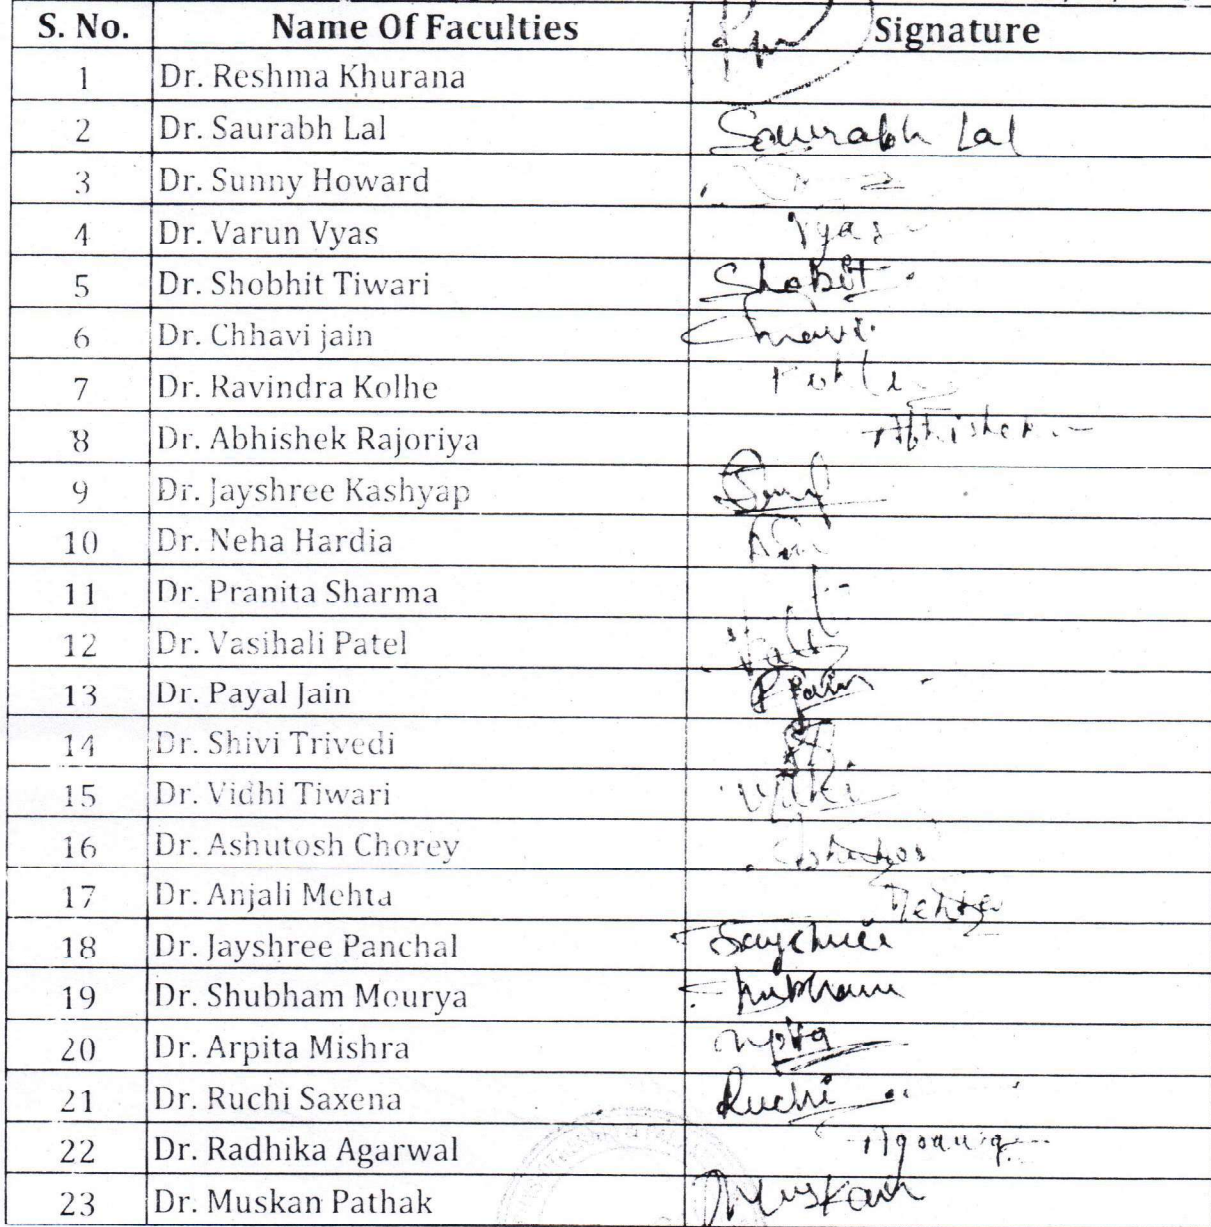 S. No. Name Of Faculties Signature
1 Dr. Reshma Khurana
2 Dr. Saurabh Lal Saurabh Lal
3 Dr. Sunny Howard
4 Dr. Varun Vyas Vyas
5 Dr. Shobhit Tiwari Shobit
6 Dr. Chhavi jain Chhavi
7 Dr. Ravindra Kolhe
8 Dr. Abhishek Rajoriya Abhishek
9 Dr. Jayshree Kashyap
10 Dr. Neha Hardia
11 Dr. Pranita Sharma
12 Dr. Vasihali Patel
13 Dr. Payal Jain PJain
14 Dr. Shivi Trivedi
15 Dr. Vidhi Tiwari Vidhi
16 Dr. Ashutosh Chorey
17 Dr. Anjali Mehta Mehta
18 Dr. Jayshree Panchal
19 Dr. Shubham Mourya Shubham
20 Dr. Arpita Mishra
21 Dr. Ruchi Saxena Ruchi
22 Dr. Radhika Agarwal
23 Dr. Muskan Pathak Muskan